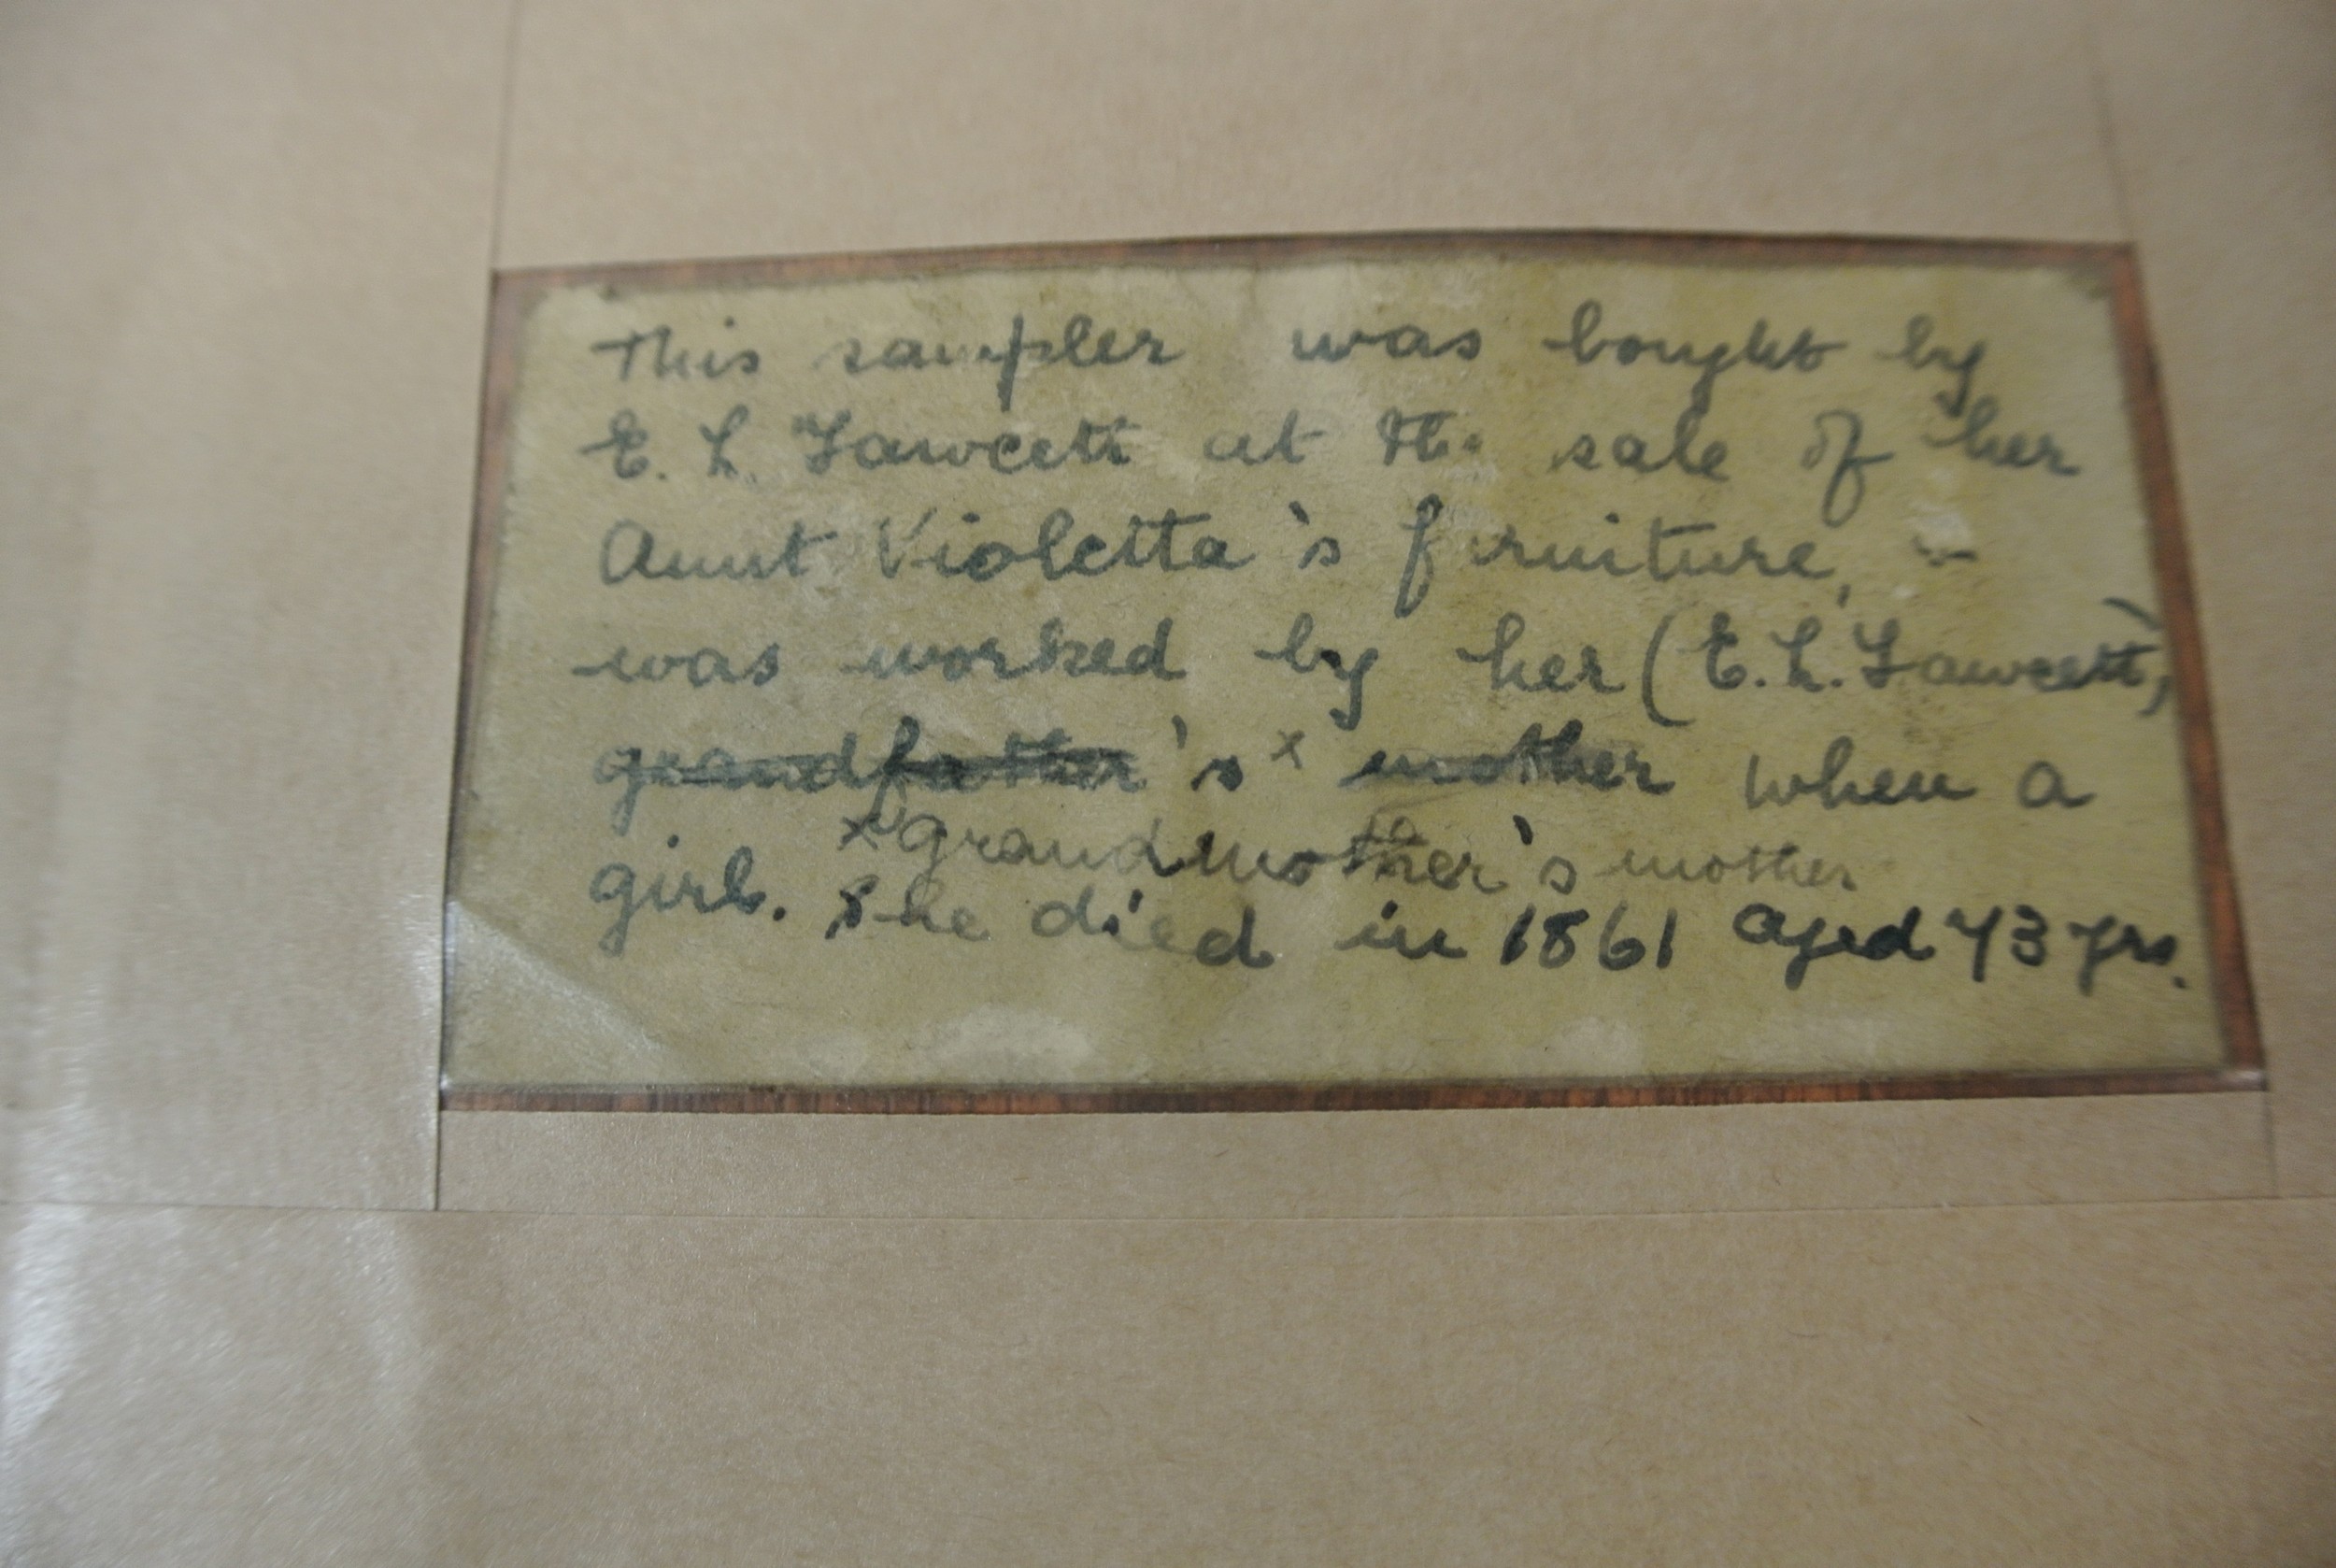 This sampler was bought by
E. L. Fawcett at the sale of her
Aunt Violetta's furniture, -
was worked by her (E. L. Fawcett)
grandfather's x mother when a
x grandmother's mother
girl. She died in 1861 aged 73 yrs.